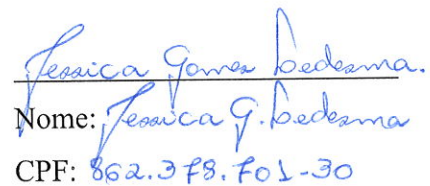 Jessica Gomes Ledesma.
Nome: Jessica G. Ledesma
CPF: 862.378.701-30